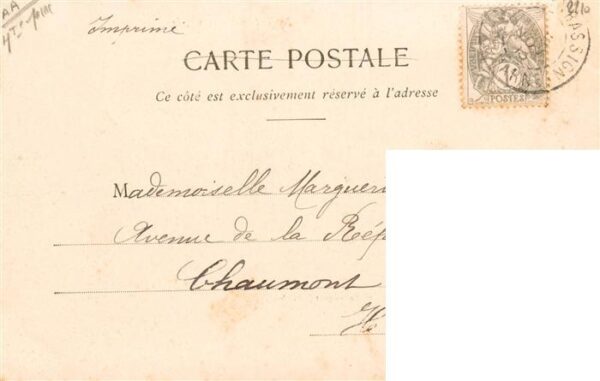 AA
Imprimé
2210
CARTE POSTALE
Ce côté est exclusivement réservé à l'adresse
POSTES
ASSIGN
Mademoiselle Margueri
Avenue de la Rép
Chaumont
H